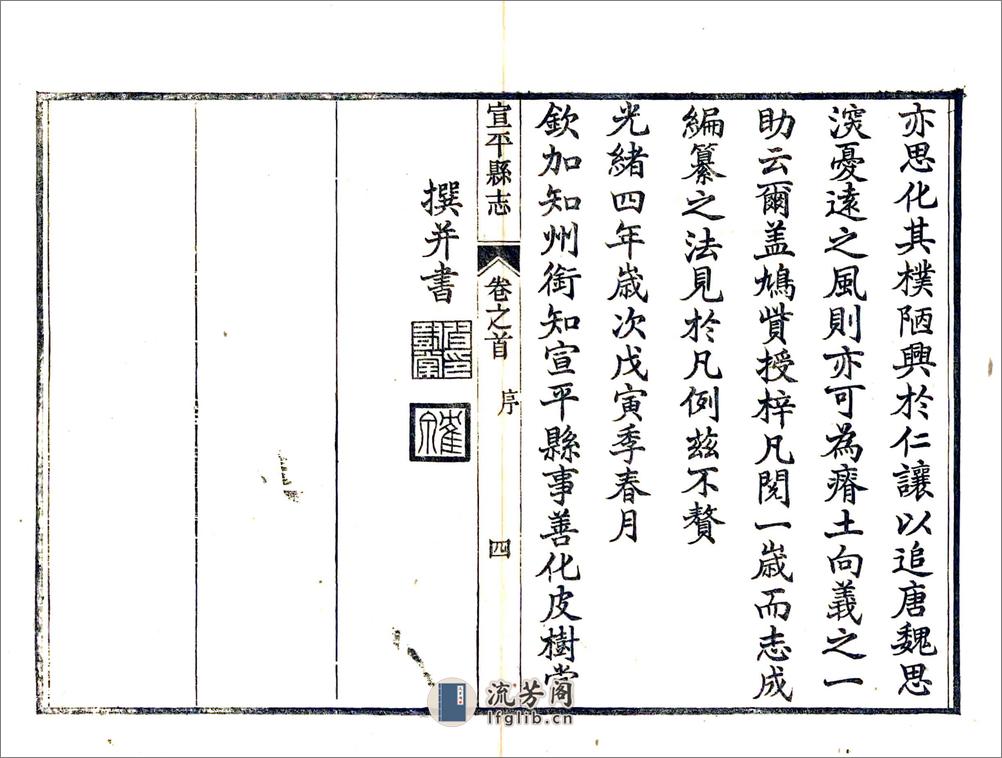 亦思化其樸陋興於仁讓以追唐魏思
深憂遠之風則亦可為瘠土向義之一
助云爾盖鳩貲授梓凡閱一歲而志成
編纂之法見於凡例茲不贅
光緒四年歲次戊寅季春月
欽加知州銜知宣平縣事善化皮樹棠
宣平縣志
卷之首
序
四
撰并書
流芳阁
lfglib.cn